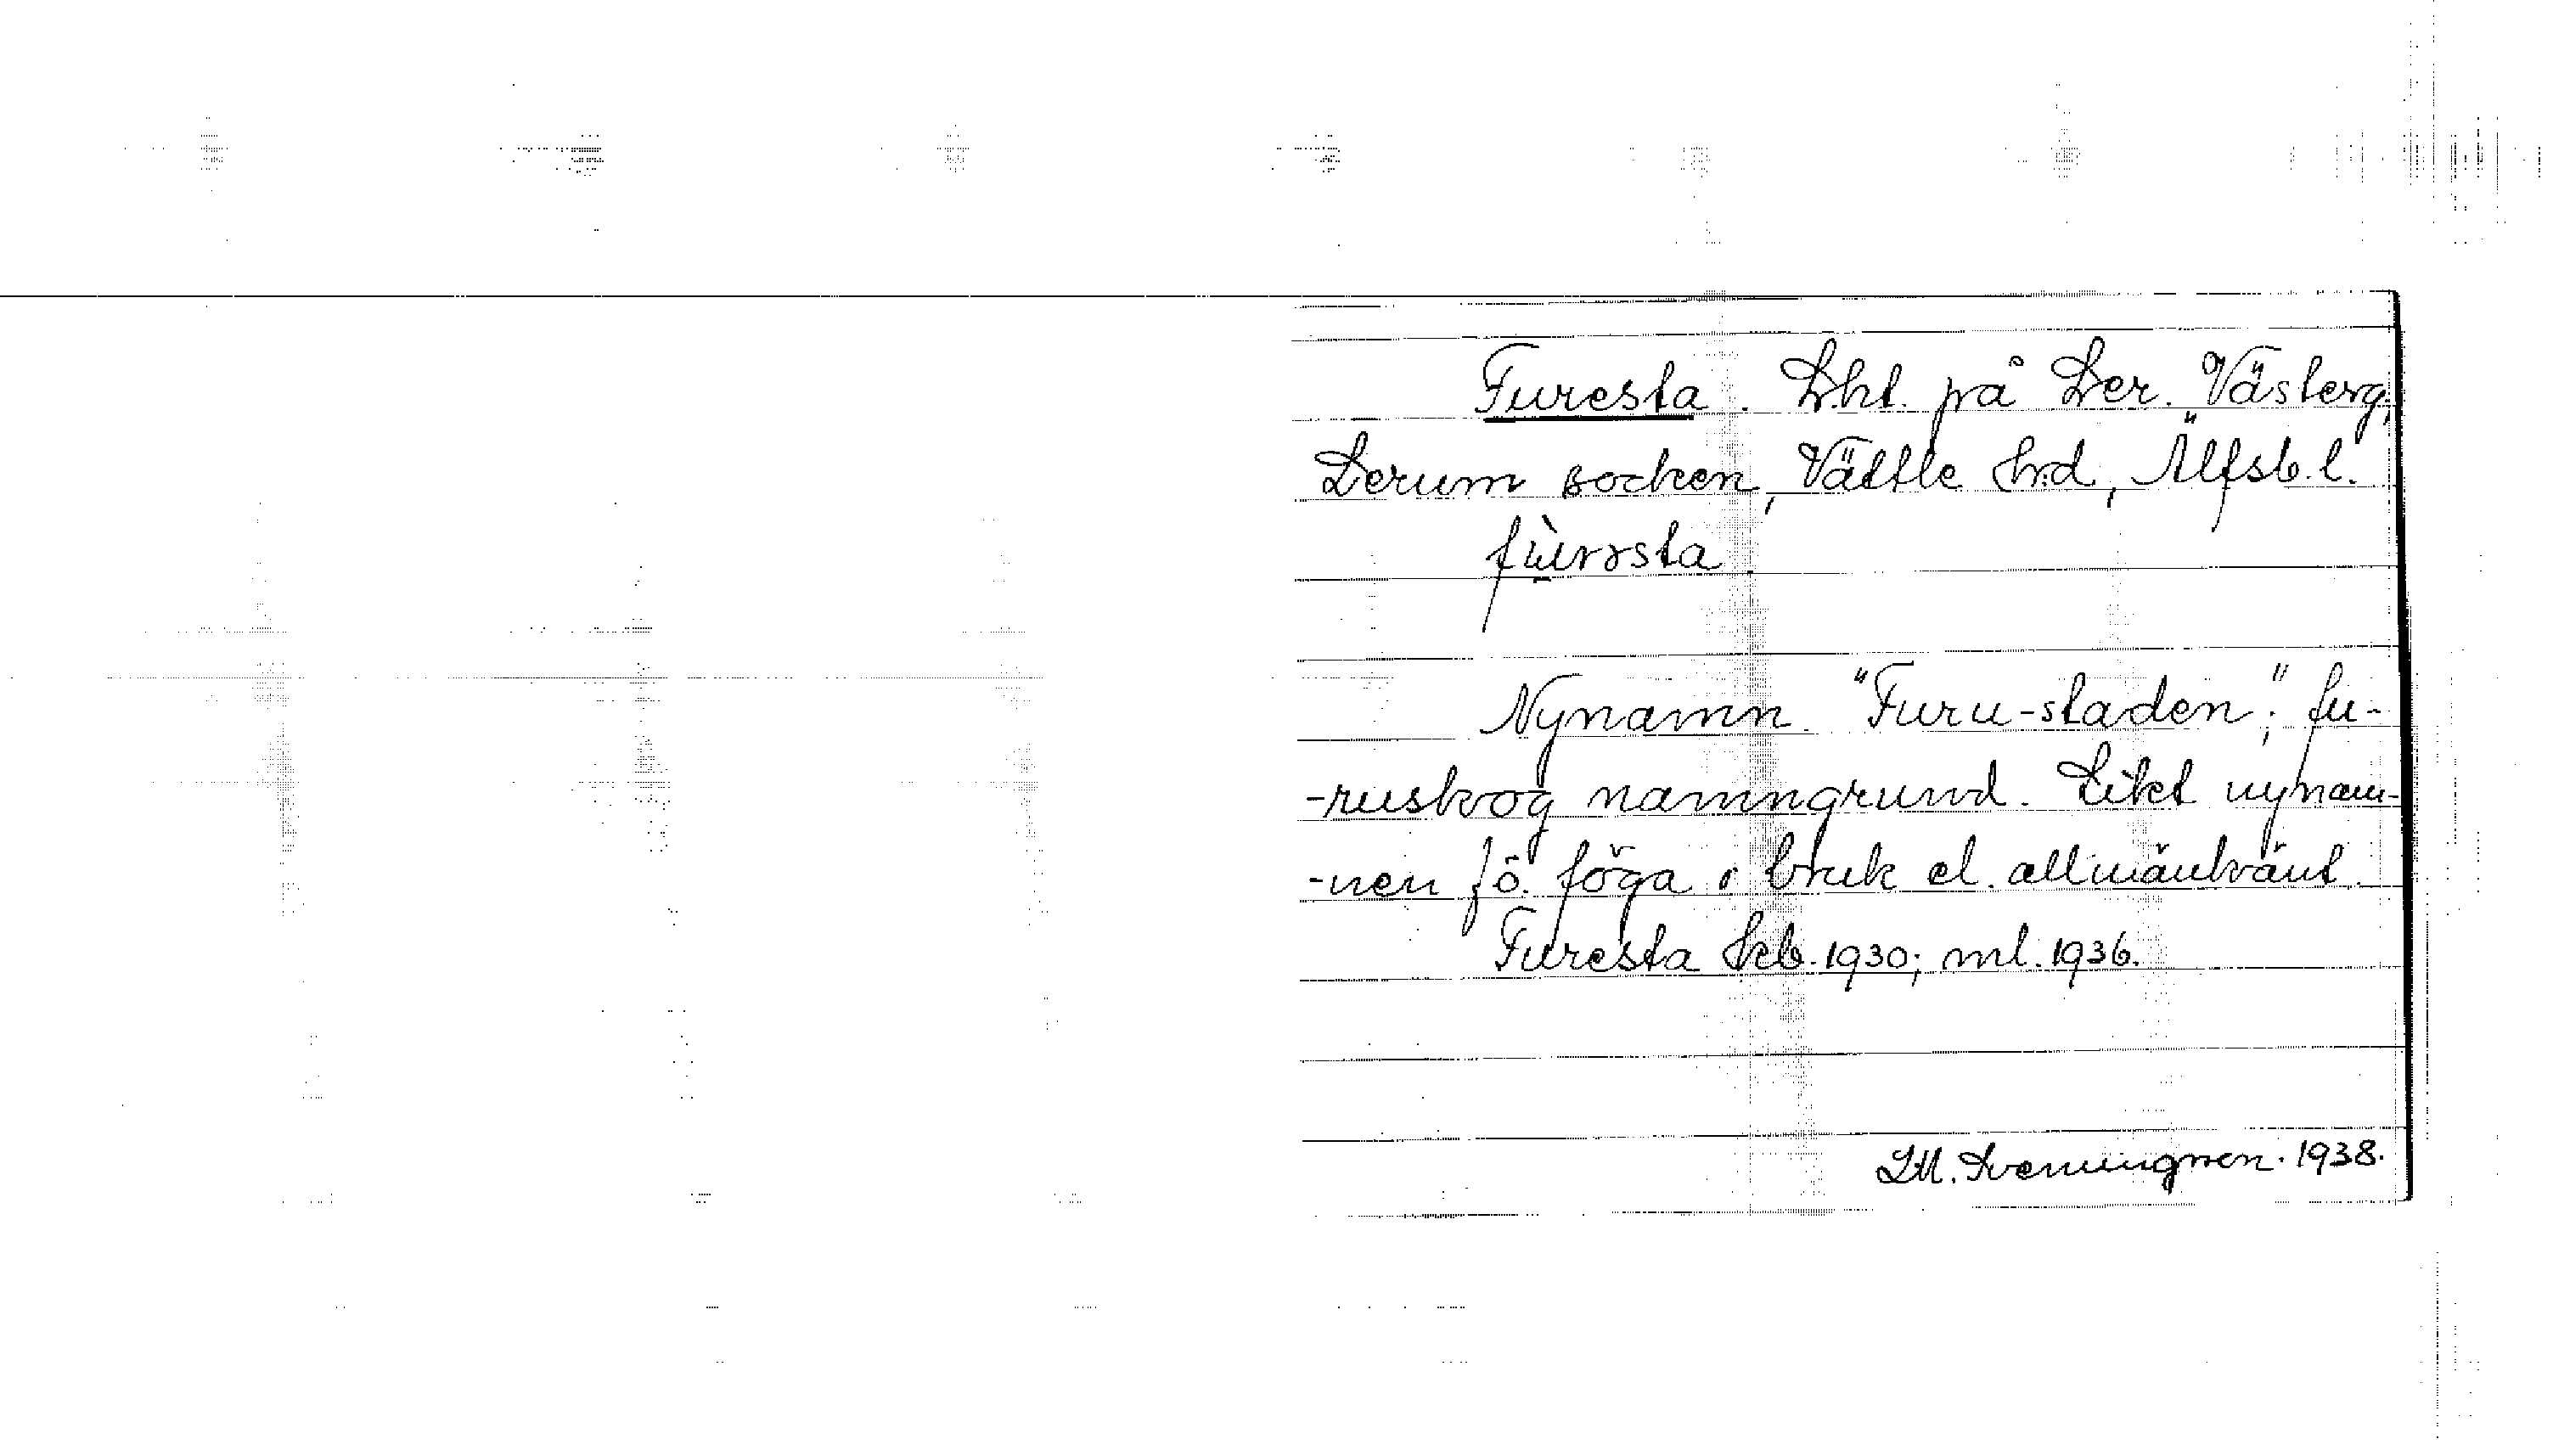 Furesta. Lht. på Ler. Västerg,
Lerum socken, Vättle hrd, Älfsb. l.
fùrrsta.
Nynamn. "Furu-staden"; fu-
-ruskog namngrund. Likt nynam-
-nen fö. föga i bruk el. allmänkänt.
Furesta kb. 1930; ml. 1936.
1938.